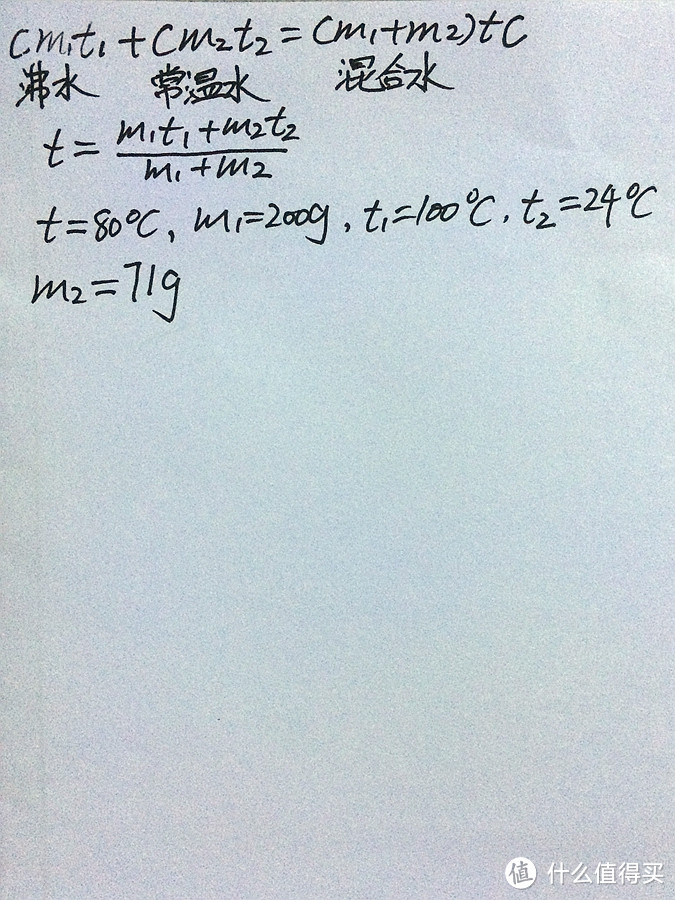 cm₁t₁+cm₂t₂=(m₁+m₂)tc
沸水 常温水 混合水
t=(m₁t₁+m₂t₂)/(m₁+m₂)
t=80℃, m₁=200g, t₁=100℃, t₂=24℃
m₂=71g
值 什么值得买